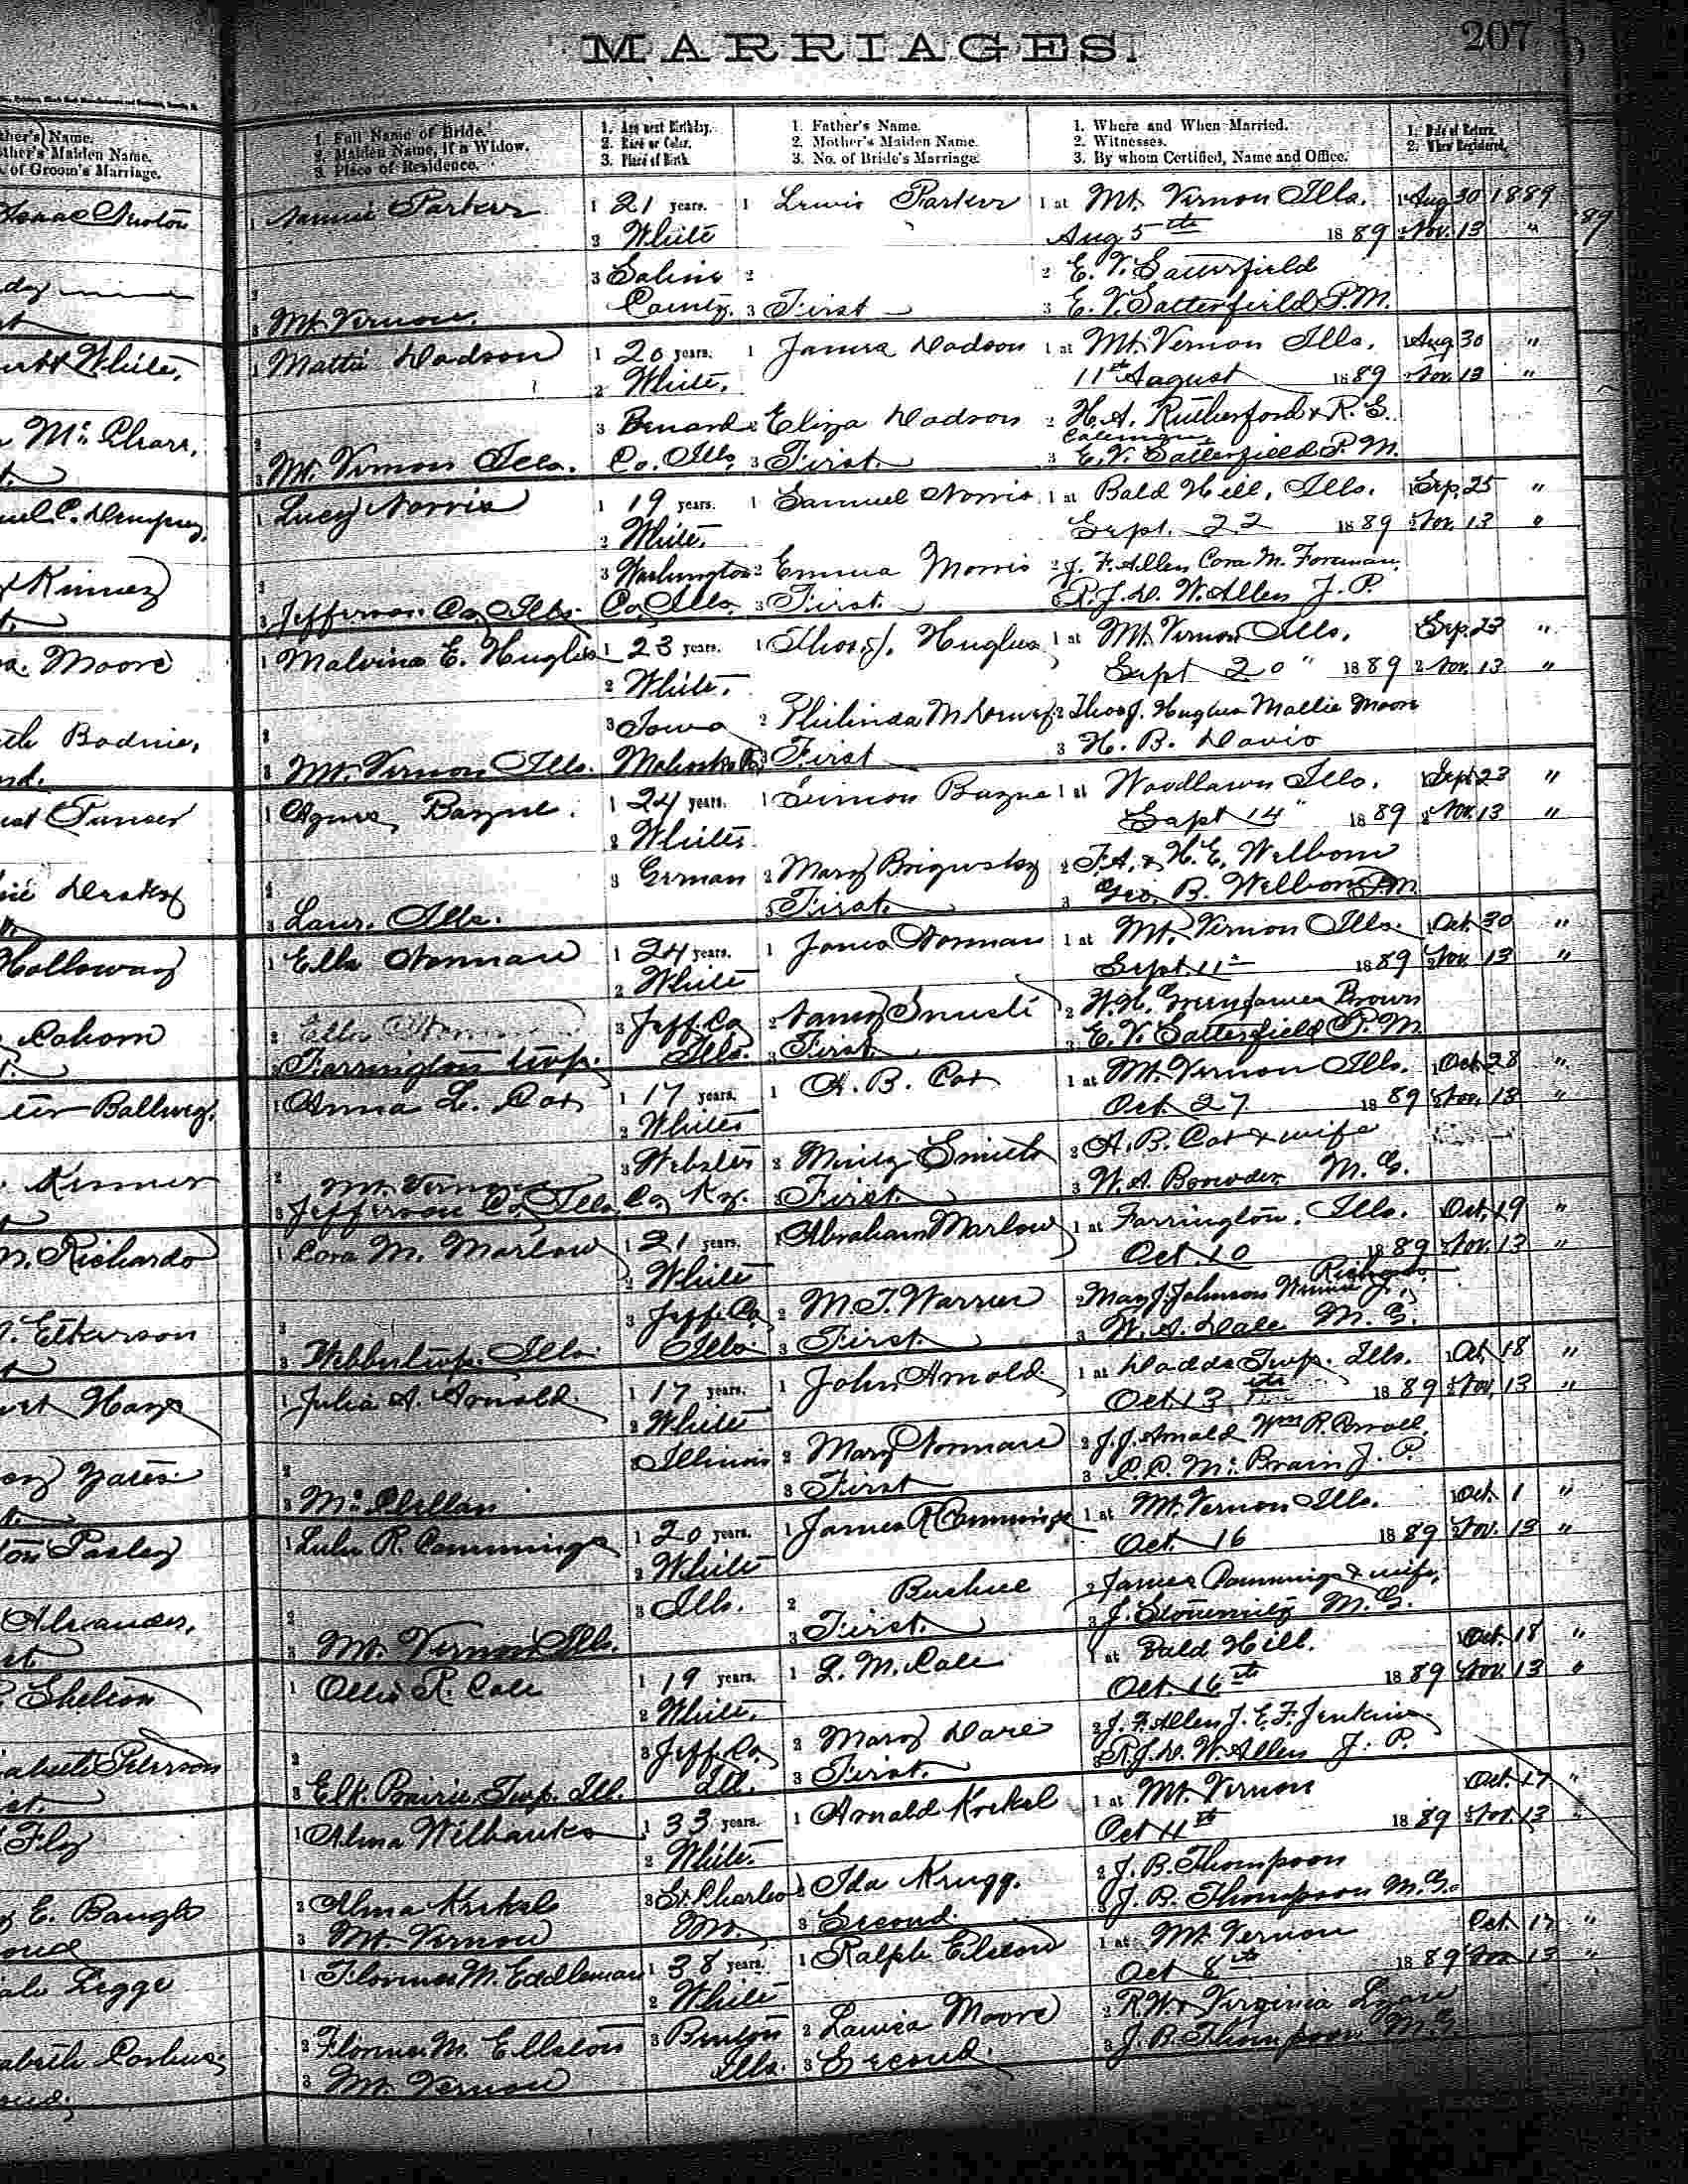 MARRIAGES.
207
1. Full Name of Bride.
2. Maiden Name, if a Widow.
3. Place of Residence.
1. Age next Birthday.
2. Race or Color.
3. Place of Birth.
1. Father's Name.
2. Mother's Maiden Name.
3. No. of Bride's Marriage.
1. Where and When Married.
2. Witnesses.
3. By whom Certified, Name and Office.
1. Date of Return.
2. When Registered.
ther's Name.
other's Maiden Name.
of Groom's Marriage.
Isaac Newton
1 Parker 1 21 years. 1 Lewis Parker 1 at Mt. Vernon Ills. 1 Aug 30 1889
White Aug 5th 1889 2 Nov. 13 "
3 Saline 2 2 E. V. Satterfield
3 Mt. Vernon. County. 3 First 3 E. V. Satterfield P.M.
White,
1 Mattie Dodson 1 20 years. 1 James Dodson 1 at Mt. Vernon Ills. 1 Aug 30 "
2 White. 11th August 1889 2 Nov. 13 "
3 2 Eliza Dodson 2 H. A. Rutherford & R. S.
Coleman
3 Mt. Vernon Ills. Co. Ills. 3 First. 3 E. V. Satterfield P. M.
1 Lucy Norris 1 19 years. 1 Samuel Norris 1 at Bald Hill, Ills. 1 Sep. 25 "
2 White. Sept. 22 1889 2 Nov. 13 "
Kinney
3 Washington 2 Emma Morris 2 J. F. Allen Cora M. Foreman.
3 Jefferson Co. Ills. Co. Ills. 3 First. 3 R. J. D. W. Allen J. P.
Moore
1 Malvina E. Hughes 1 23 years. 1 Thos. J. Hughes 1 at Mt. Vernon Ills. 1 Sep. 23 "
2 White. Sept 20" 1889 2 Nov. 13 "
3 Iowa 2 Philinda M. 2 Thos J. Hughes Mattie Moore
3 Mt. Vernon Ills. 3 First 3 H. B. Davis
1 Agnes Bazne. 1 24 years. 1 Simon Bazne 1 at Woodlawn Ills. 1 Sept 23 "
2 White Sept 14" 1889 2 Nov. 13 "
3 German 2 Mary 2 F. A. & H. E. Welborn
3 Ills. 3 First. 3 Geo. B. Welborn
Holloway
1 Ella Norman 1 24 years. 1 James Norman 1 at Mt. Vernon Ills. 1 Oct. 30 "
2 White Sept. 11 1889 2 Nov 13 "
Cohorn
2 Ella 3 Jeff. Co 2 Nancy 2 W. H. Green James Brown
3 Farrington twp. Ills. 3 First. 3 E. V. Satterfield P. M.
1 Anna L. Cox 1 17 years. 1 A. B. Cox 1 at Mt. Vernon Ills. 1 Oct. 28 "
2 White Oct. 27 1889 2 Nov. 13 "
3 Webster 2 Smith 2 A. B. Cox & wife
Mt. Vernon
3 Jefferson Co. Ills. Co Ky. 3 First. 3 W. A. Browder M. G.
Richards
1 Cora M. Marlow 1 21 years. 1 Abraham Marlow 1 at Farrington, Ills. 1 Oct. 19 "
2 White Oct. 10 1889 2 Nov. 13 "
3 Jeff. Co. 2 M. T. Warren 2 May J. Johnson
3 Webber twp. Ills. Ills. 3 First. 3 W. A. Dale M. G.
Hays
1 Julia A. Arnold 1 17 years. 1 John Arnold 1 at Dodds Twp. Ills. 1 Oct. 18 "
2 White Oct. 13 1889 2 Nov. 13 "
Yates
3 Illinois 2 Mary Norman 2 J. J. Arnold Wm R.
3 McClellan 3 First 3 C. C. McBrain J. P.
Pasley
1 Lulu R. Cummings 1 20 years. 1 James R Cummings 1 at Mt. Vernon Ills. 1 Oct. 1 "
2 White Oct. 16 1889 2 Nov. 13 "
Alexander,
3 Ills. 2 2 James Cummings & wife,
3 Mt. Vernon Ills. 3 First. 3 J. M. G.
Shelton
1 Ollie R. Cole 1 19 years. 1 L. M. Cole 1 at Bald Hill. 1 Oct. 18 "
2 White. Oct. 16th 1889 2 Nov. 13 "
Peterson
3 Jeff Co. 2 Mary Dare 2 J. F. Allen J. E. F. Jenkins
3 Elk Prairie Twp. Ill. Ill. 3 First. 3 R. J. D. W. Allen J. P.
Fly
1 Alma Wilbanks 1 33 years. 1 Arnold Krekel 1 at Mt. Vernon Oct. 17 "
2 White. Oct 11th 1889 2 Nov. 13 "
E. Baugh
2 Alma Krekel 3 St. Charles 2 Ida Krugg. 2 J. B. Thompson
3 Mt. Vernon Mo. 3 Second. 3 J. B. Thompson M. G.
Legge
1 Florence M. Eddleman 1 38 years. 1 Ralph Elston 1 at Mt Vernon Oct. 17 "
2 White Oct 8th 1889 Nov 13 "
2 Florence M. Ellston 3 Benton 2 Louisa Moore 2 R. W. & Virginia Lyon
3 Mt. Vernon Ills. 3 Second. 3 J. B. Thompson M. G.